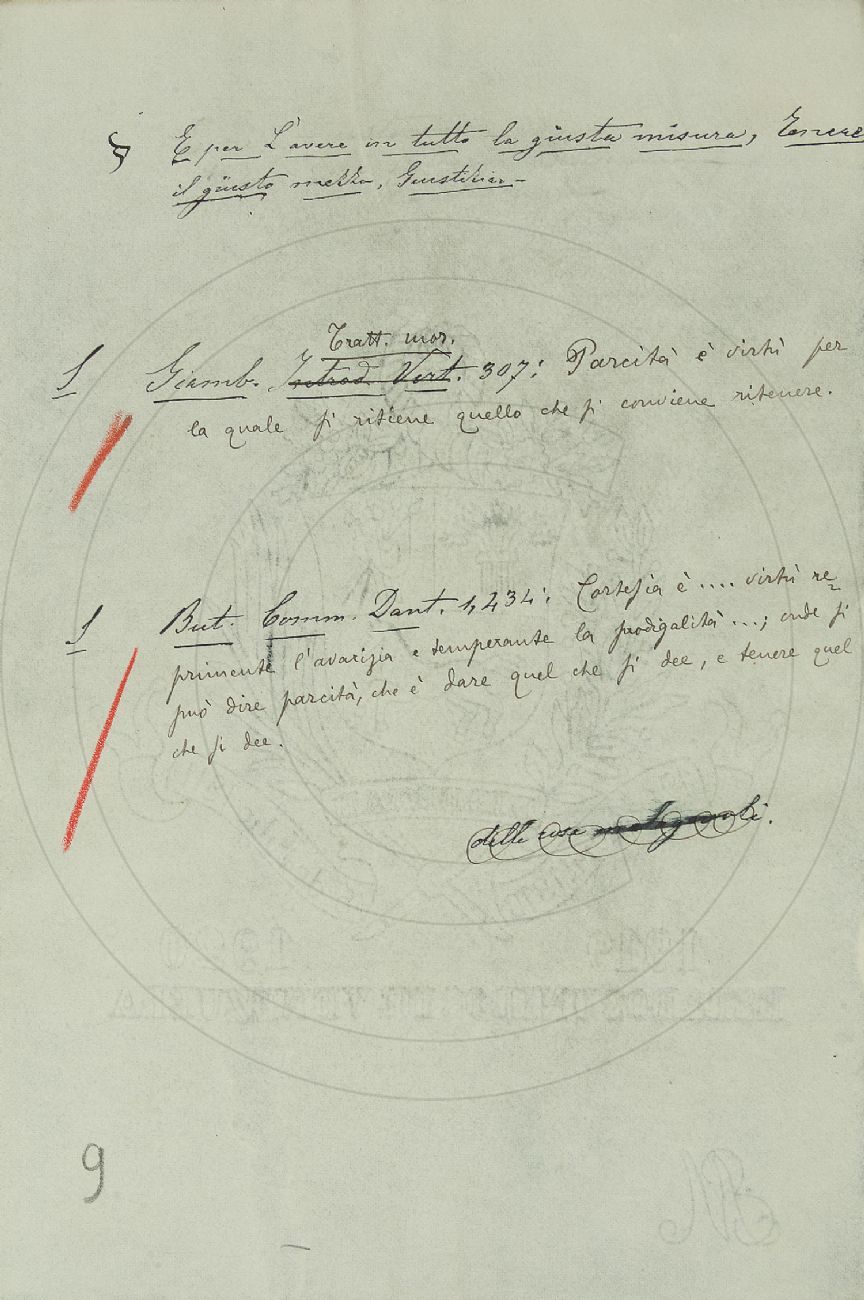 § E per L'avere in tutto la giusta misura, Tenere
il giusto mezzo, Giustizia. -
Tratt. mor.
1 Giamb. Introd. Virt. 307: Parcità è virtù per
la quale si ritiene quello che si conviene ritenere.
1 But. Comm. Dant. 1, 434: Cortesia è .... virtù re-
primente l'avarizia e temperante la prodigalità ...; onde si
può dire parcità, che è dare quel che si dee, e tenere quel
che si dee.
delle cose
9